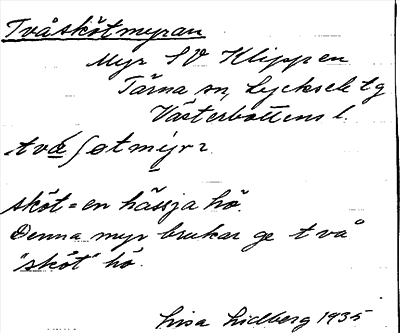 Tvåskötmyran
Myr SV Klippen
Tärna sn, Lycksele tg
Västerbottens l.
två ʃøtmýrɿ
sköt = en hässja hö.
Denna myr brukar ge två
"sköt" hö.
Lisa Lidberg 1935